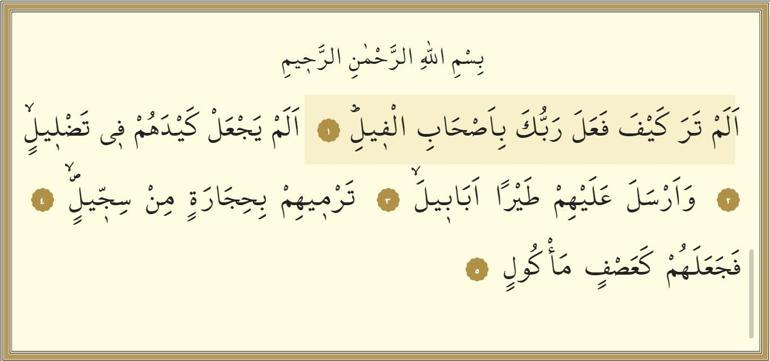 بِسْمِ اللّٰهِ الرَّحْمٰنِ الرَّحٖيمِ
اَلَمْ تَرَ كَيْفَ فَعَلَ رَبُّكَ بِاَصْحَابِ الْفٖيلِؕ ١ اَلَمْ يَجْعَلْ كَيْدَهُمْ فٖى تَضْلٖيلٍۙ
٢ وَاَرْسَلَ عَلَيْهِمْ طَيْرًا اَبَابٖيلَۙ ٣ تَرْمٖيهِمْ بِحِجَارَةٍ مِنْ سِجّٖيلٍۙ ٤
فَجَعَلَهُمْ كَعَصْفٍ مَأْكُولٍ ٥